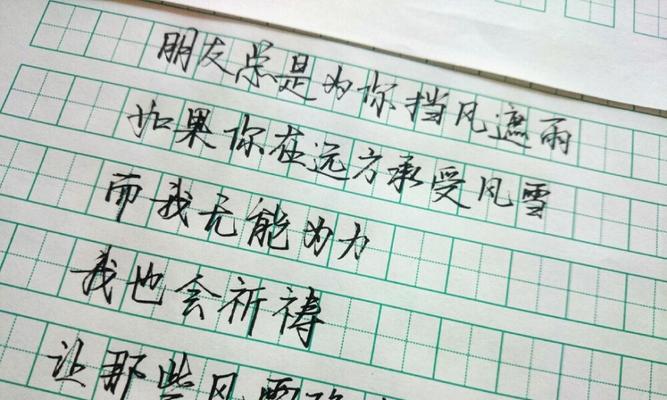 朋友总是为你挡风遮雨
如果你在远方承受风雪
而我无能为力
我也会祈祷
让那些风雪